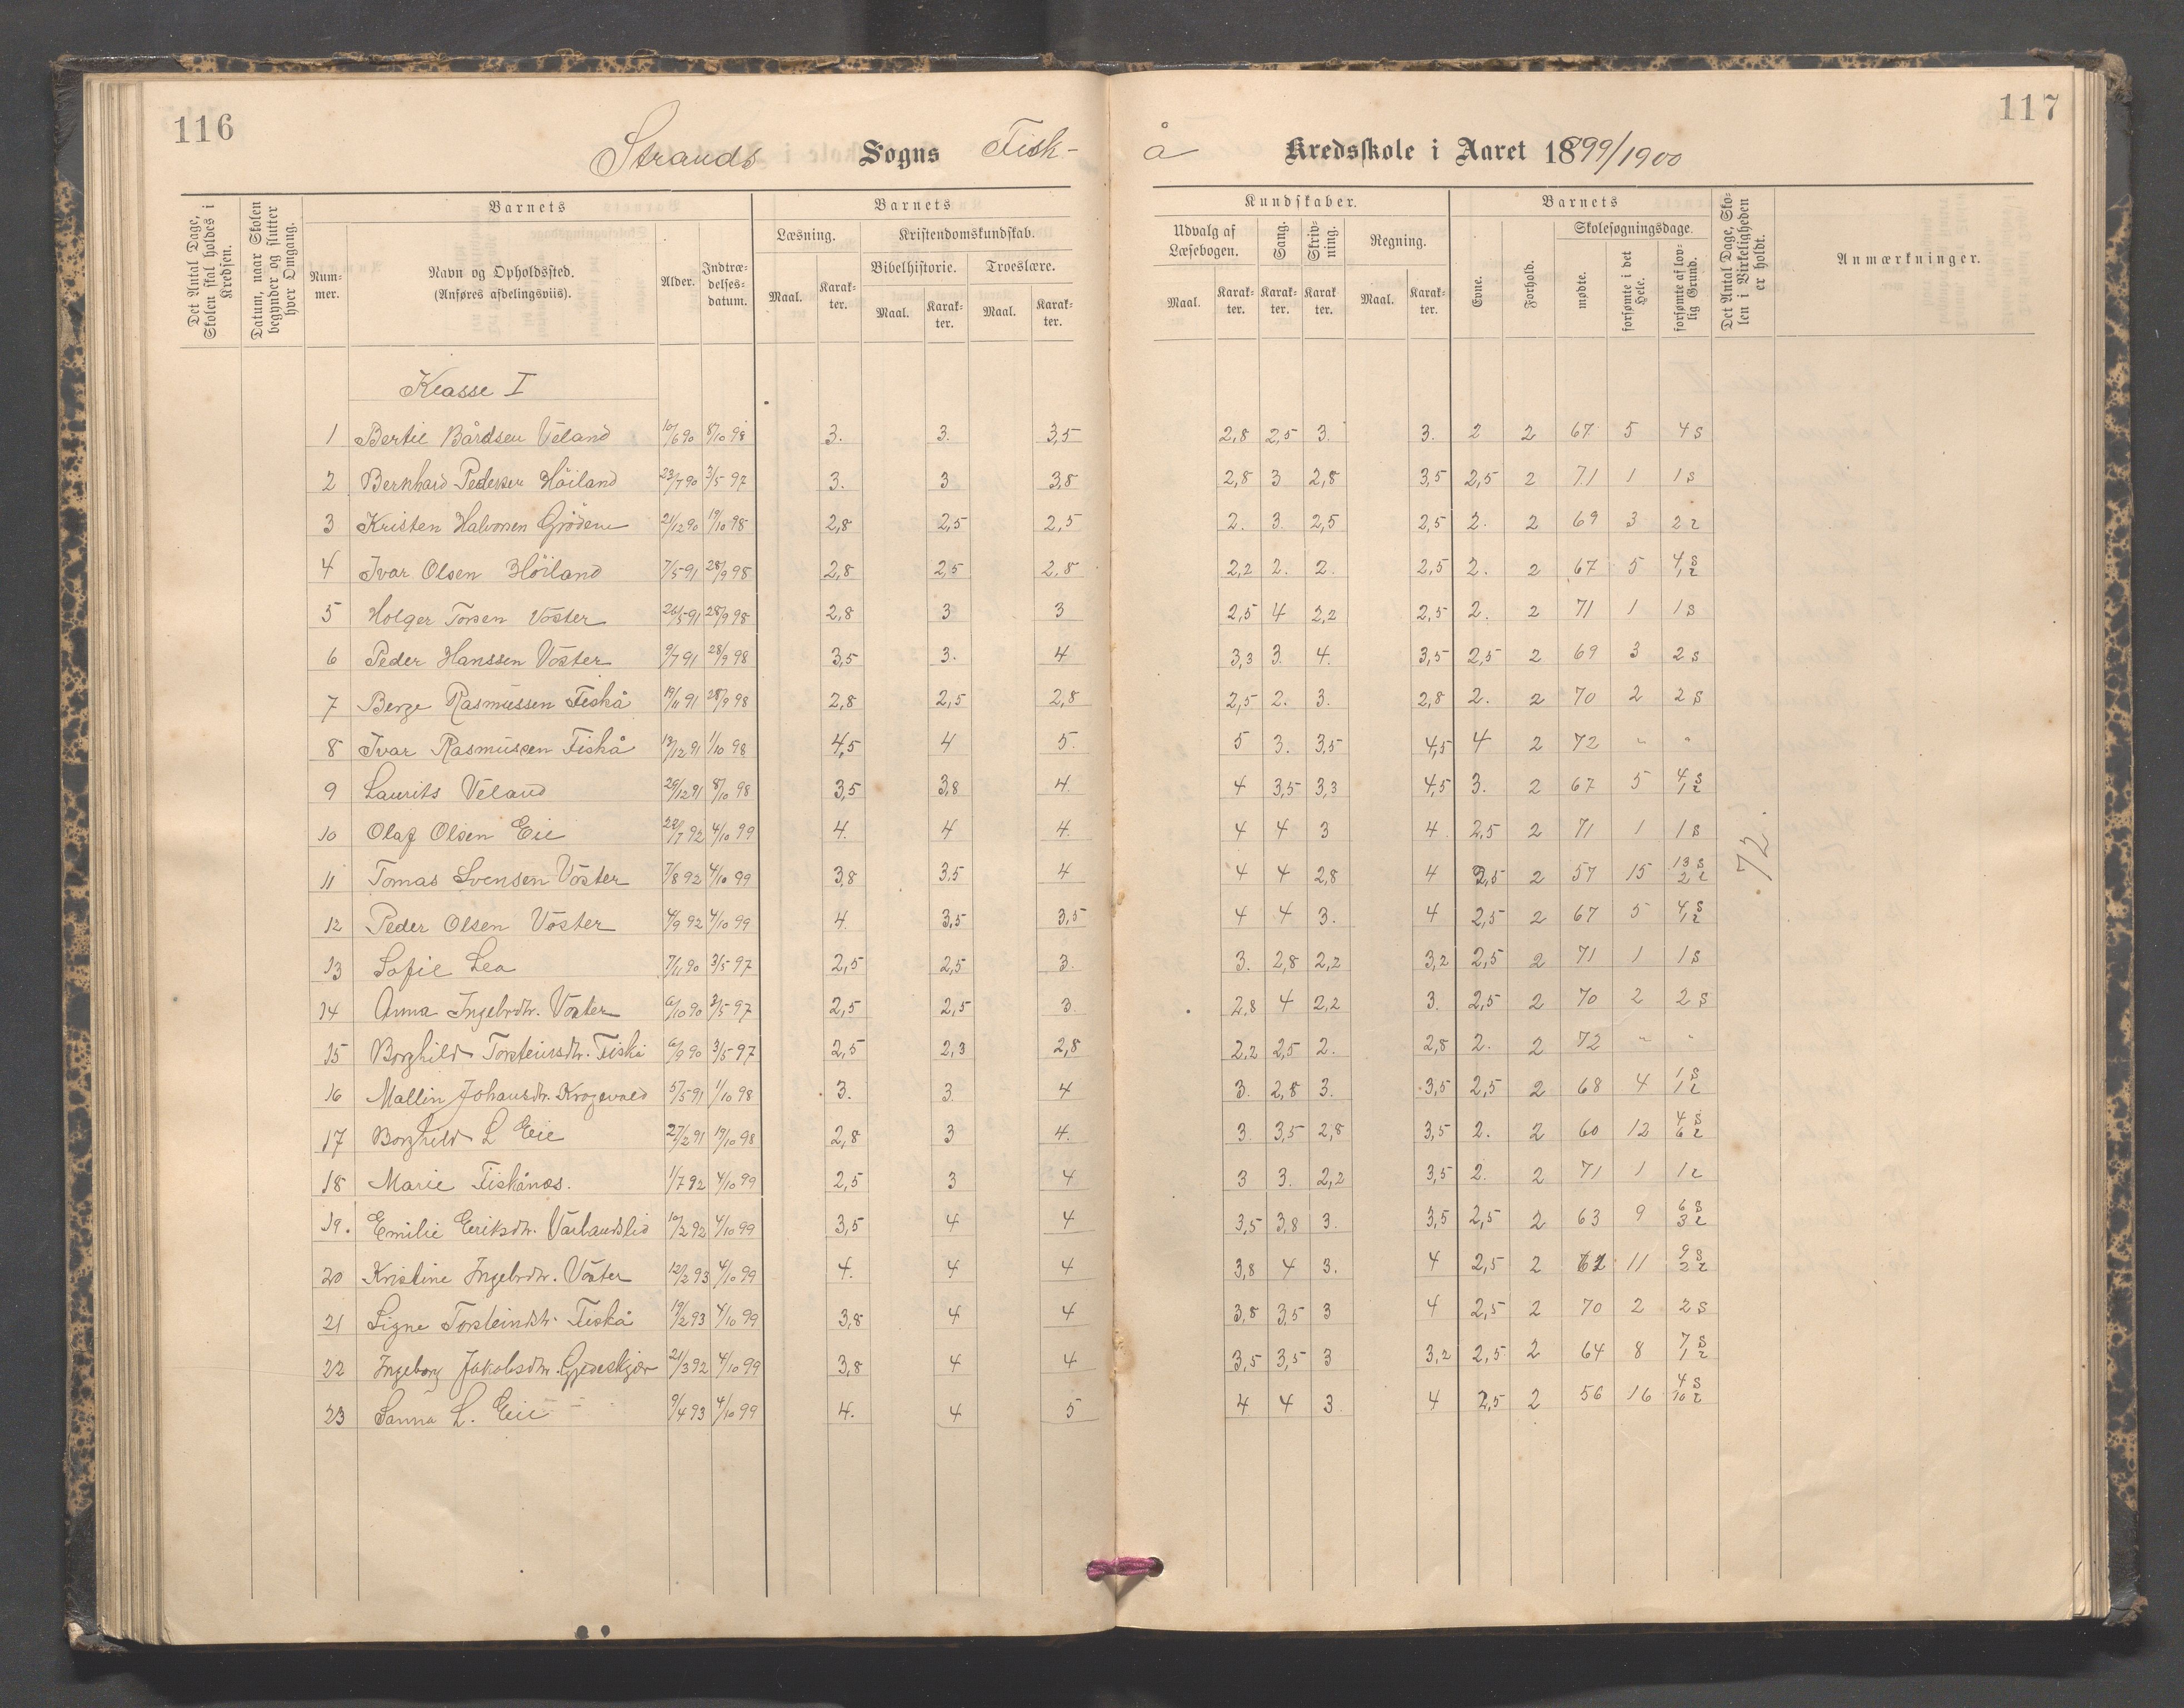 116
117
Strands Sogns Fisk-
å Kredsskole i Aaret 1899/1900
Det Antal Dage, Skolen skal holdes i Kredsen.
Datum, naar Skolen begynder og slutter hver Omgang.
Barnets
Num-mer.
Navn og Opholdssted.
(Anføres afdelingsviis).
Alder.
Indtræ-delses-datum.
Barnets
Læsning.
Kristendomskundskab.
Bibelhistorie.
Troeslære.
Maal. Karak-ter. Maal. Karak-ter. Maal. Karak-ter.
Kundskaber.
Udvalg af Læsebogen.
Sang.
Skriv-ning.
Regning.
Maal. Karak-ter. Karak-ter. Karak-ter. Maal. Karak-ter.
Barnets
Evne.
Forhold.
Skolesøgningsdage.
mødte.
forsømte i det Hele.
forsømte af lov-lig Grund.
Det Antal Dage, Sko-len i Virkeligheden er holdt.
Anmærkninger.
Klasse I
1 Bertil Bårdsen Veland 10/6 90 8/10 98 3. 3. 3,5 2,8 2,5 3. 3. 2 2 67 5 4 s
2 Bernhard Pedersen Höiland 23/7 90 3/5 97 3. 3 3,8 2,8 3 2,8 3,5 2,5 2 71 1 1 s
3 Kristen Halvorsen Grödem 21/12 90 19/10 98 2,8 2,5 2,5 2. 3. 2,5 2,5 2. 2 69 3 2 l
4 Ivar Olsen Höiland 7/5 91 28/9 98 2,8 2,5 2,8 2,2 2. 2. 2,5 2. 2 67 5 4 s 1 l
5 Holger Torsen Voster 26/5 91 28/9 98 2,8 3 3 2,5 4 2,2 2,5 2. 2 71 1 1 s
6 Peder Hanssen Voster 9/7 91 28/9 98 3,5 3. 4 3,3 3. 4. 3,5 2,5 2 69 3 2 s
7 Berge Rasmussen Fiskå 19/11 91 28/9 98 2,8 2,5 2,8 2,5 2. 3. 2,8 2. 2 70 2 2 s
8 Ivar Rasmussen Fiskå 13/12 91 1/10 98 4,5 4 5. 5 3. 3,5 4,5 4 2 72 " "
9 Laurits Veland 29/12 91 8/10 98 3,5 3,8 4. 4 3,5 3,3 4,5 3. 2 67 5 4 s 1 l
10 Olaf Olsen Eie 28/7 92 4/10 99 4. 4 4. 4 4 3 4. 2,5 2 71 1 1 s
11 Tomas Svensen Voster 7/8 92 4/10 99 3,8 3,5 4 4 4 2,8 4 2,5 2 57 15 13 s 2 l
72.
12 Peder Olsen Voster 4/9 92 4/10 99 4. 3,5 3,5 4 4 3. 4 2,5 2 67 5 4 s 1 l
13 Sofie Lea 7/11 90 3/5 97 2,5 2,5 3. 3. 2,8 2,2 3,2 2,5 2 71 1 1 s
14 Anna Ingebrdtr. Voster 6/10 90 3/5 97 2,5 2,5 3. 2,8 4 2,2 3. 2,5 2 70 2 2 s
15 Borghild Torsteinsdtr. Fiskå 6/9 90 3/5 97 2,5 2,3 2,8 2,2 2,5 2. 2,8 2. 2 72 " "
16 Mallin Johansdtr. Krogevold 5/5 91 1/10 98 3. 3. 4 3. 2,8 3. 3,5 2,5 2 68 4 1 s 1 l
17 Borghild L Eie 27/2 91 19/10 98 2,8 3 4. 3 3,5 2,8 3,5 2. 2 60 12 4 s 6 l
18 Marie Fiskånæs. 1/7 92 4/10 99 2,5 3 4 3 3. 2,2 3,5 2. 2 71 1 1 l
19. Emilie Eriksdtr. Varlandslid 10/2 92 4/10 99 3,5 4 4 3,5 3,8 3. 3,5 2,5 2 63 9 6 s 3 l
20 Kristine Ingebrdtr. Voster 12/2 93 4/10 99 4. 4 4 3,8 4 3. 4 2,5 2 61 11 9 s 2 l
21 Signe Torsteinsdtr. Fiskå 19/2 93 4/10 99 3,8 4 4 3,8 3,5 3 4 2,5 2 70 2 2 s
22 Ingeborg Jakobsdtr. Gjereskjær 21/3 92 4/10 99 3,8 4 4 3,5 3,5 3 3,2 2,5 2 64 8 7 s 1 l
23 Sanna L. Eie 9/4 93 4/10 99 4. 4 5 4 4 3. 4 2,5 2 56 16 4 s 10 l